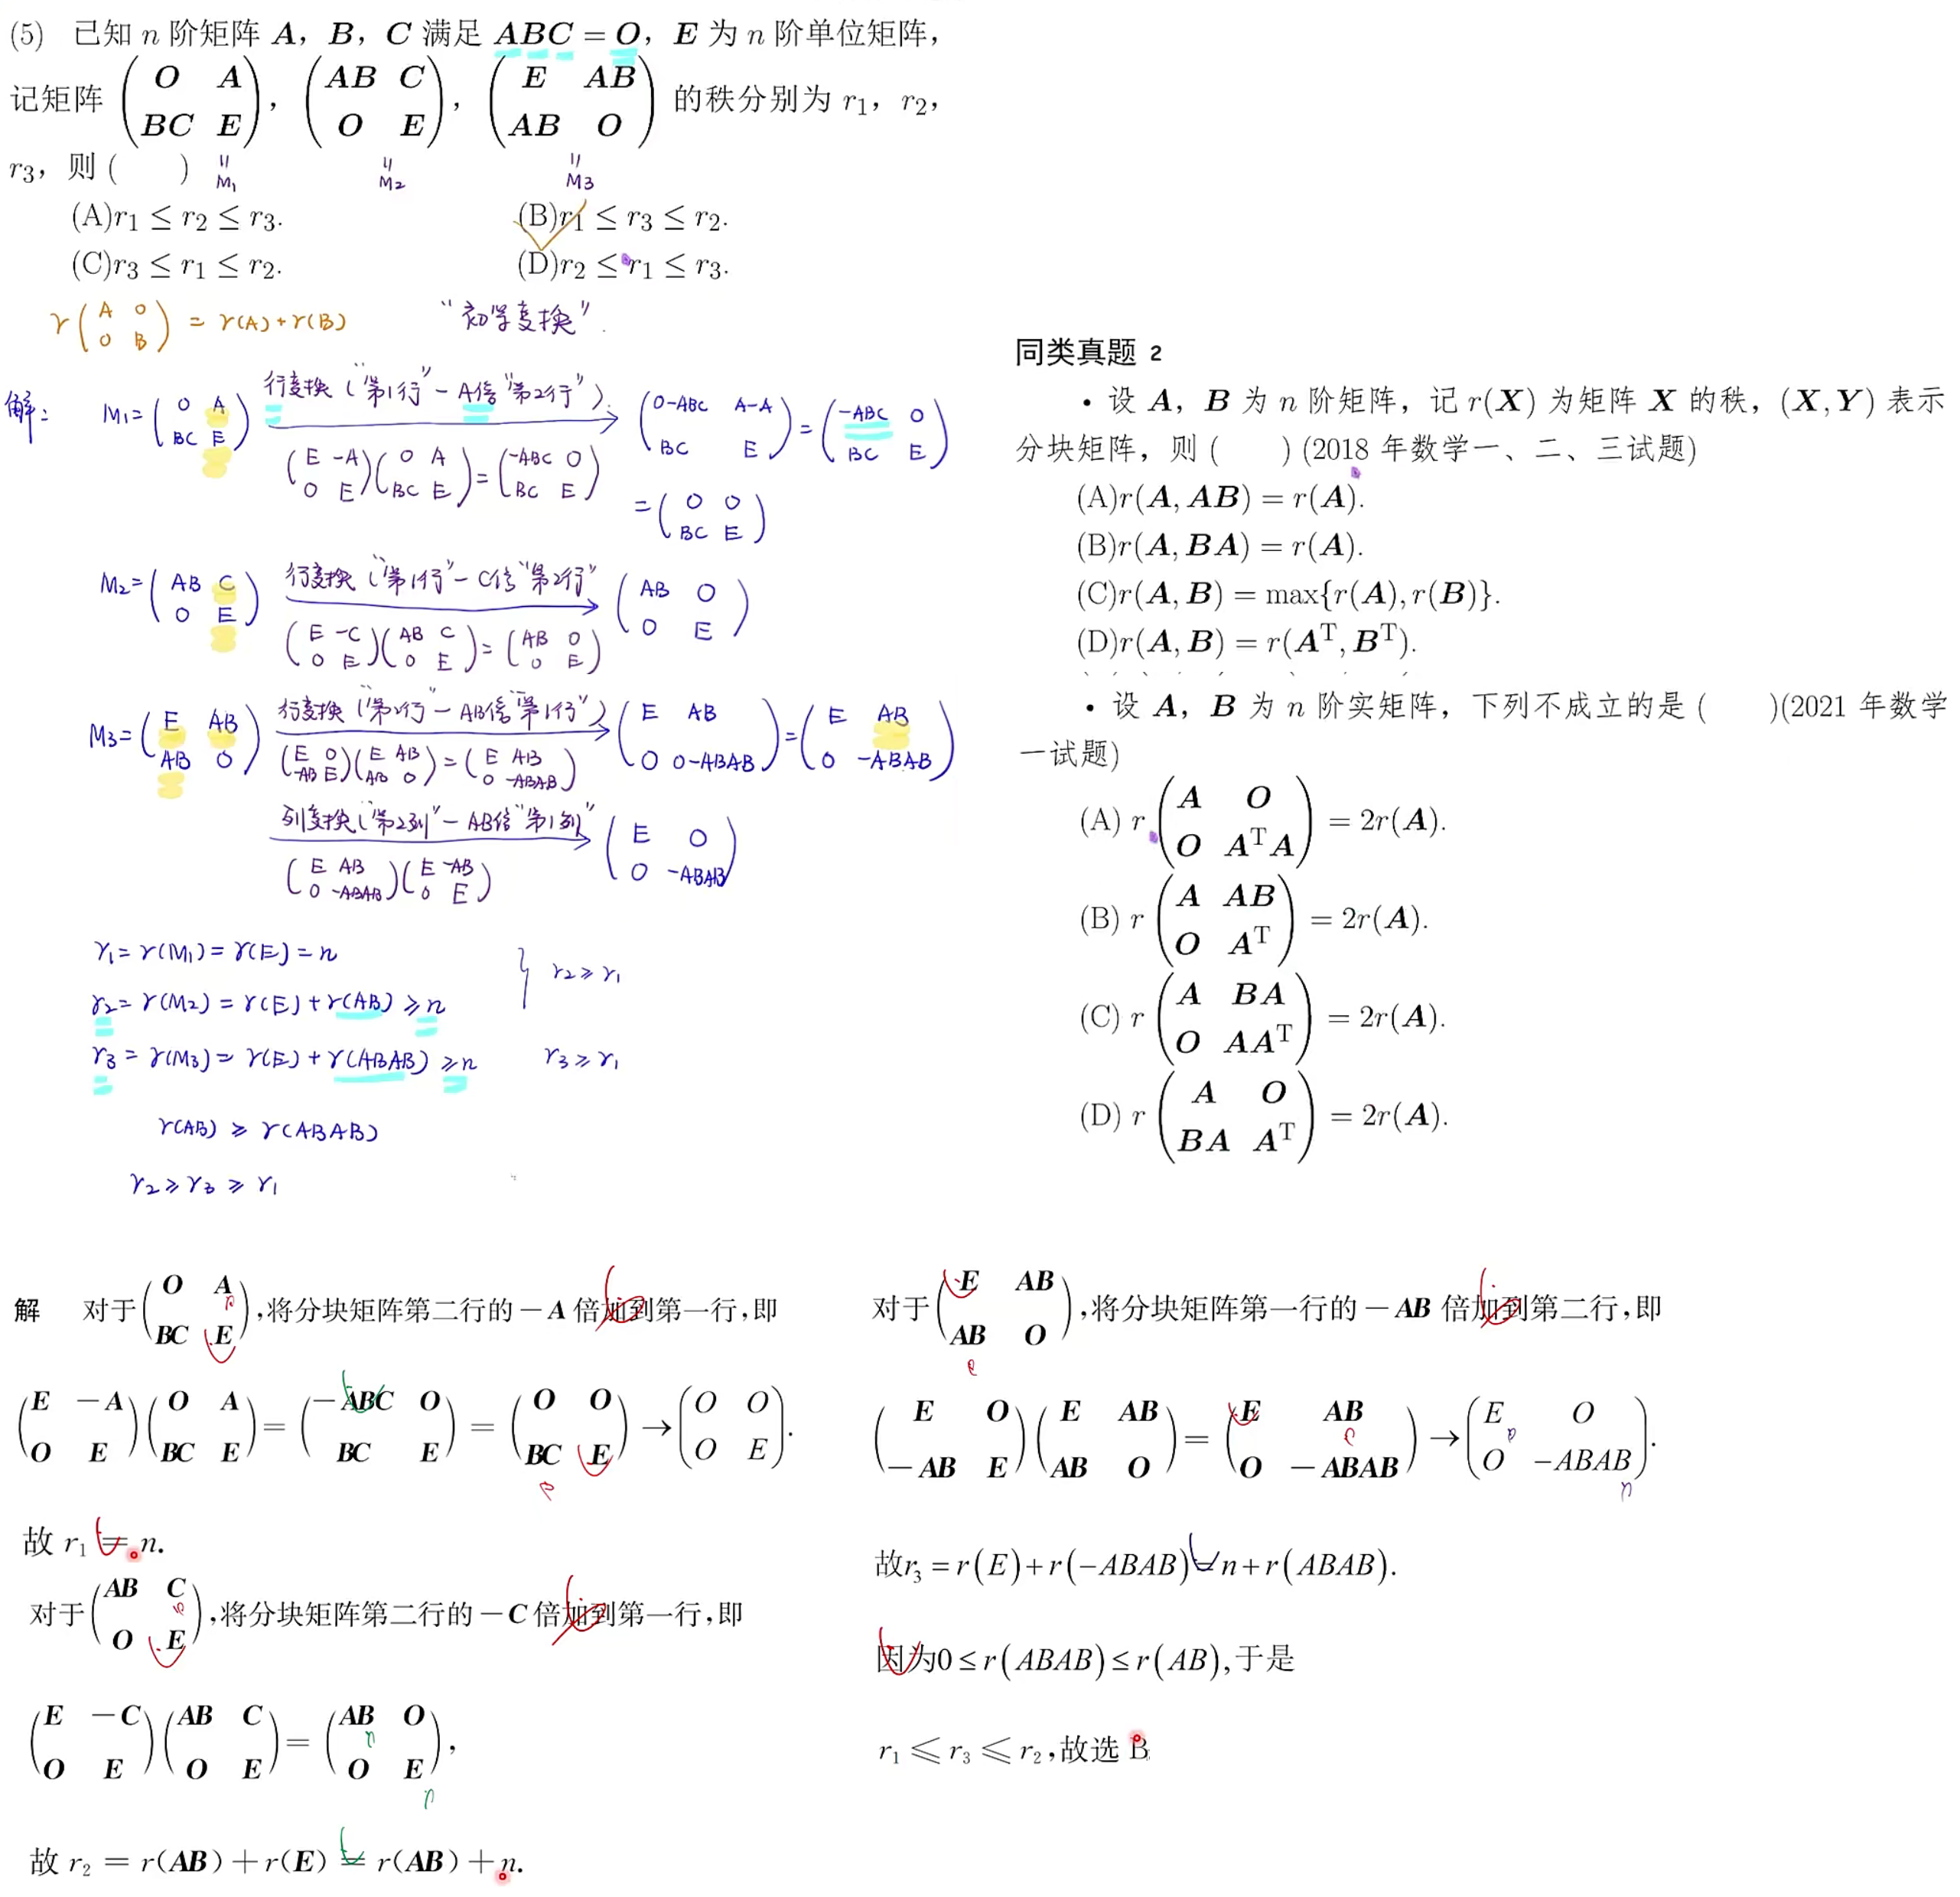 (5) 已知 n 阶矩阵 A，B，C 满足 ABC = O，E 为 n 阶单位矩阵，
记矩阵 \begin{pmatrix} O & A \\ BC & E \end{pmatrix}，\begin{pmatrix} AB & C \\ O & E \end{pmatrix}，\begin{pmatrix} E & AB \\ AB & O \end{pmatrix} 的秩分别为 r₁，r₂，
r₃，则 (　　)
" M₁　" M₂　" M₃
(A)r₁ ≤ r₂ ≤ r₃.　(B)r₁ ≤ r₃ ≤ r₂.
(C)r₃ ≤ r₁ ≤ r₂.　(D)r₂ ≤ r₁ ≤ r₃.
r\begin{pmatrix} A & 0 \\ 0 & B \end{pmatrix} = r(A)+r(B)　"初等变换".
解：M₁=\begin{pmatrix} 0 & A \\ BC & E \end{pmatrix} 行变换（"第1行"－A倍"第2行"）\begin{pmatrix} 0-ABC & A-A \\ BC & E \end{pmatrix}=\begin{pmatrix} -ABC & 0 \\ BC & E \end{pmatrix}
\begin{pmatrix} E & -A \\ 0 & E \end{pmatrix}\begin{pmatrix} 0 & A \\ BC & E \end{pmatrix}=\begin{pmatrix} -ABC & 0 \\ BC & E \end{pmatrix}
=\begin{pmatrix} 0 & 0 \\ BC & E \end{pmatrix}
M₂=\begin{pmatrix} AB & C \\ 0 & E \end{pmatrix} 行变换（"第1行"－C倍"第2行" \begin{pmatrix} AB & 0 \\ 0 & E \end{pmatrix}
\begin{pmatrix} E & -C \\ 0 & E \end{pmatrix}\begin{pmatrix} AB & C \\ 0 & E \end{pmatrix}=\begin{pmatrix} AB & 0 \\ 0 & E \end{pmatrix}
M₃=\begin{pmatrix} E & AB \\ AB & 0 \end{pmatrix} 行变换（"第2行"－AB倍"第1行"）\begin{pmatrix} E & AB \\ 0 & 0-ABAB \end{pmatrix}=\begin{pmatrix} E & AB \\ 0 & -ABAB \end{pmatrix}
\begin{pmatrix} E & 0 \\ -AB & E \end{pmatrix}\begin{pmatrix} E & AB \\ AB & 0 \end{pmatrix}=\begin{pmatrix} E & AB \\ 0 & -ABAB \end{pmatrix}
列变换（"第2列"－AB倍"第1列" \begin{pmatrix} E & 0 \\ 0 & -ABAB \end{pmatrix}
\begin{pmatrix} E & AB \\ 0 & -ABAB \end{pmatrix}\begin{pmatrix} E & -AB \\ 0 & E \end{pmatrix}
r₁= r(M₁)= r(E)= n
r₂= r(M₂)= r(E)+r(AB) ≥ n　} r₂ ≥ r₁
r₃ = r(M₃)= r(E)+r(ABAB) ≥ n　r₃ ≥ r₁
r(AB) ≥ r(ABAB)
r₂ ≥ r₃ ≥ r₁
同类真题 2
• 设 A，B 为 n 阶矩阵，记 r(X) 为矩阵 X 的秩，(X, Y) 表示
分块矩阵，则 (　　) (2018 年数学一、二、三试题)
(A)r(A, AB) = r(A).
(B)r(A, BA) = r(A).
(C)r(A, B) = max{r(A), r(B)}.
(D)r(A, B) = r(Aᵀ, Bᵀ).
• 设 A，B 为 n 阶实矩阵，下列不成立的是 (　　)(2021 年数学
一试题)
(A) r\begin{pmatrix} A & O \\ O & AᵀA \end{pmatrix} = 2r(A).
(B) r\begin{pmatrix} A & AB \\ O & Aᵀ \end{pmatrix} = 2r(A).
(C) r\begin{pmatrix} A & BA \\ O & AAᵀ \end{pmatrix} = 2r(A).
(D) r\begin{pmatrix} A & O \\ BA & Aᵀ \end{pmatrix} = 2r(A).
解　对于\begin{pmatrix} O & A \\ BC & E \end{pmatrix},将分块矩阵第二行的－A 倍加到第一行,即
\begin{pmatrix} E & -A \\ O & E \end{pmatrix}\begin{pmatrix} O & A \\ BC & E \end{pmatrix}=\begin{pmatrix} -ABC & O \\ BC & E \end{pmatrix}=\begin{pmatrix} O & O \\ BC & E \end{pmatrix}→\begin{pmatrix} O & O \\ O & E \end{pmatrix}.
故 r₁ = n.
对于\begin{pmatrix} AB & C \\ O & E \end{pmatrix},将分块矩阵第二行的－C 倍加到第一行,即
\begin{pmatrix} E & -C \\ O & E \end{pmatrix}\begin{pmatrix} AB & C \\ O & E \end{pmatrix}=\begin{pmatrix} AB & O \\ O & E \end{pmatrix},
故 r₂ = r(AB)+r(E) = r(AB)+n.
对于\begin{pmatrix} E & AB \\ AB & O \end{pmatrix},将分块矩阵第一行的－AB 倍加到第二行,即
\begin{pmatrix} E & O \\ -AB & E \end{pmatrix}\begin{pmatrix} E & AB \\ AB & O \end{pmatrix}=\begin{pmatrix} E & AB \\ O & -ABAB \end{pmatrix}→\begin{pmatrix} E & O \\ O & -ABAB \end{pmatrix}.
故r₃ = r(E)+r(-ABAB) = n+r(ABAB).
因为0 ≤ r(ABAB) ≤ r(AB),于是
r₁ ≤ r₃ ≤ r₂,故选 B.